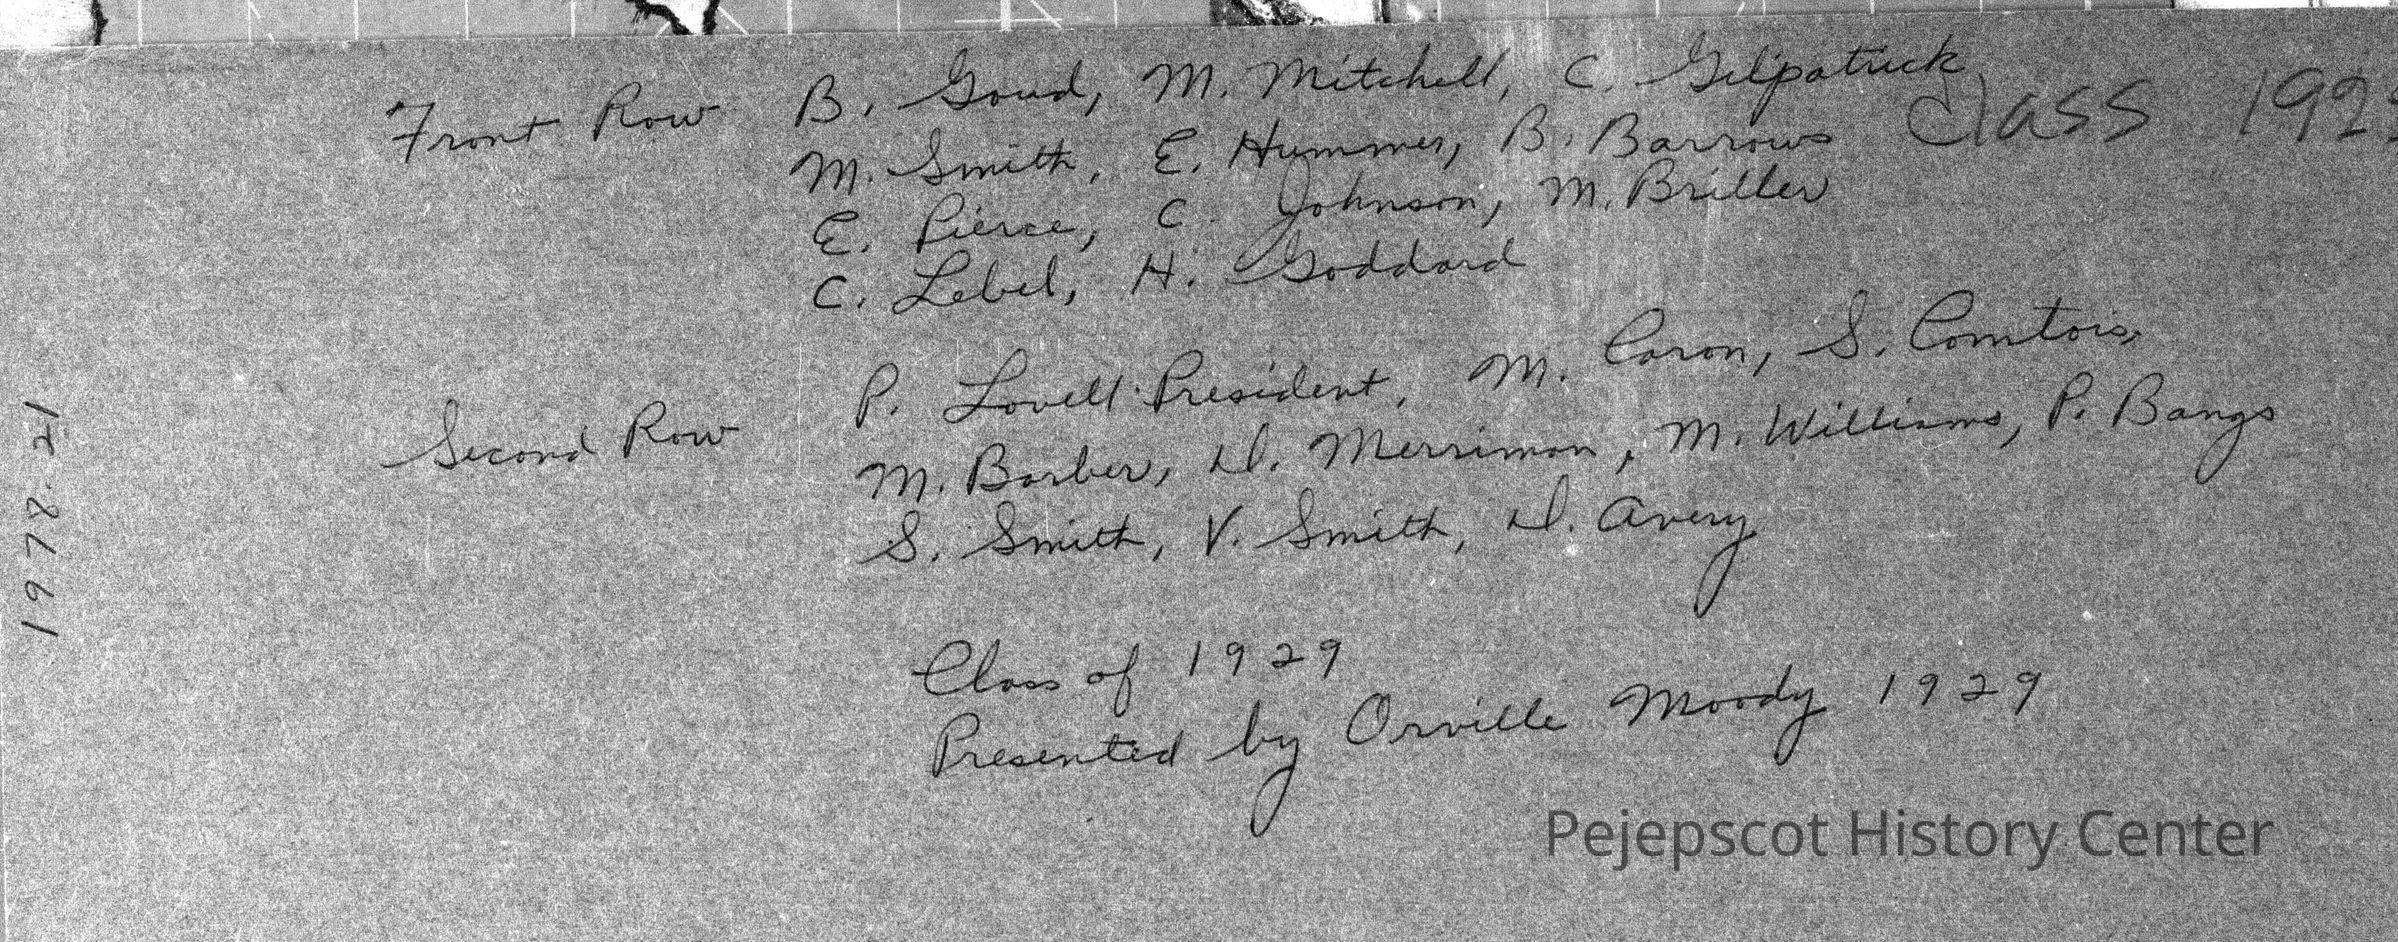 Front Row B. Goud, M. Mitchell, C. Gilpatrick
M. Smith, E. Hummer, B. Barrows
E. Pierce, C. Johnson, M. Briller
C. Lebel, H. Goddard
Class 192
Second Row P. Lovell-President, M. Caron, S. Comtois,
M. Barber, D. Merriman, M. Williams, P. Bangs
S. Smith, V. Smith, D. Avery
Class of 1929
Presented by Orville Moody 1929
1978.21
Pejepscot History Center